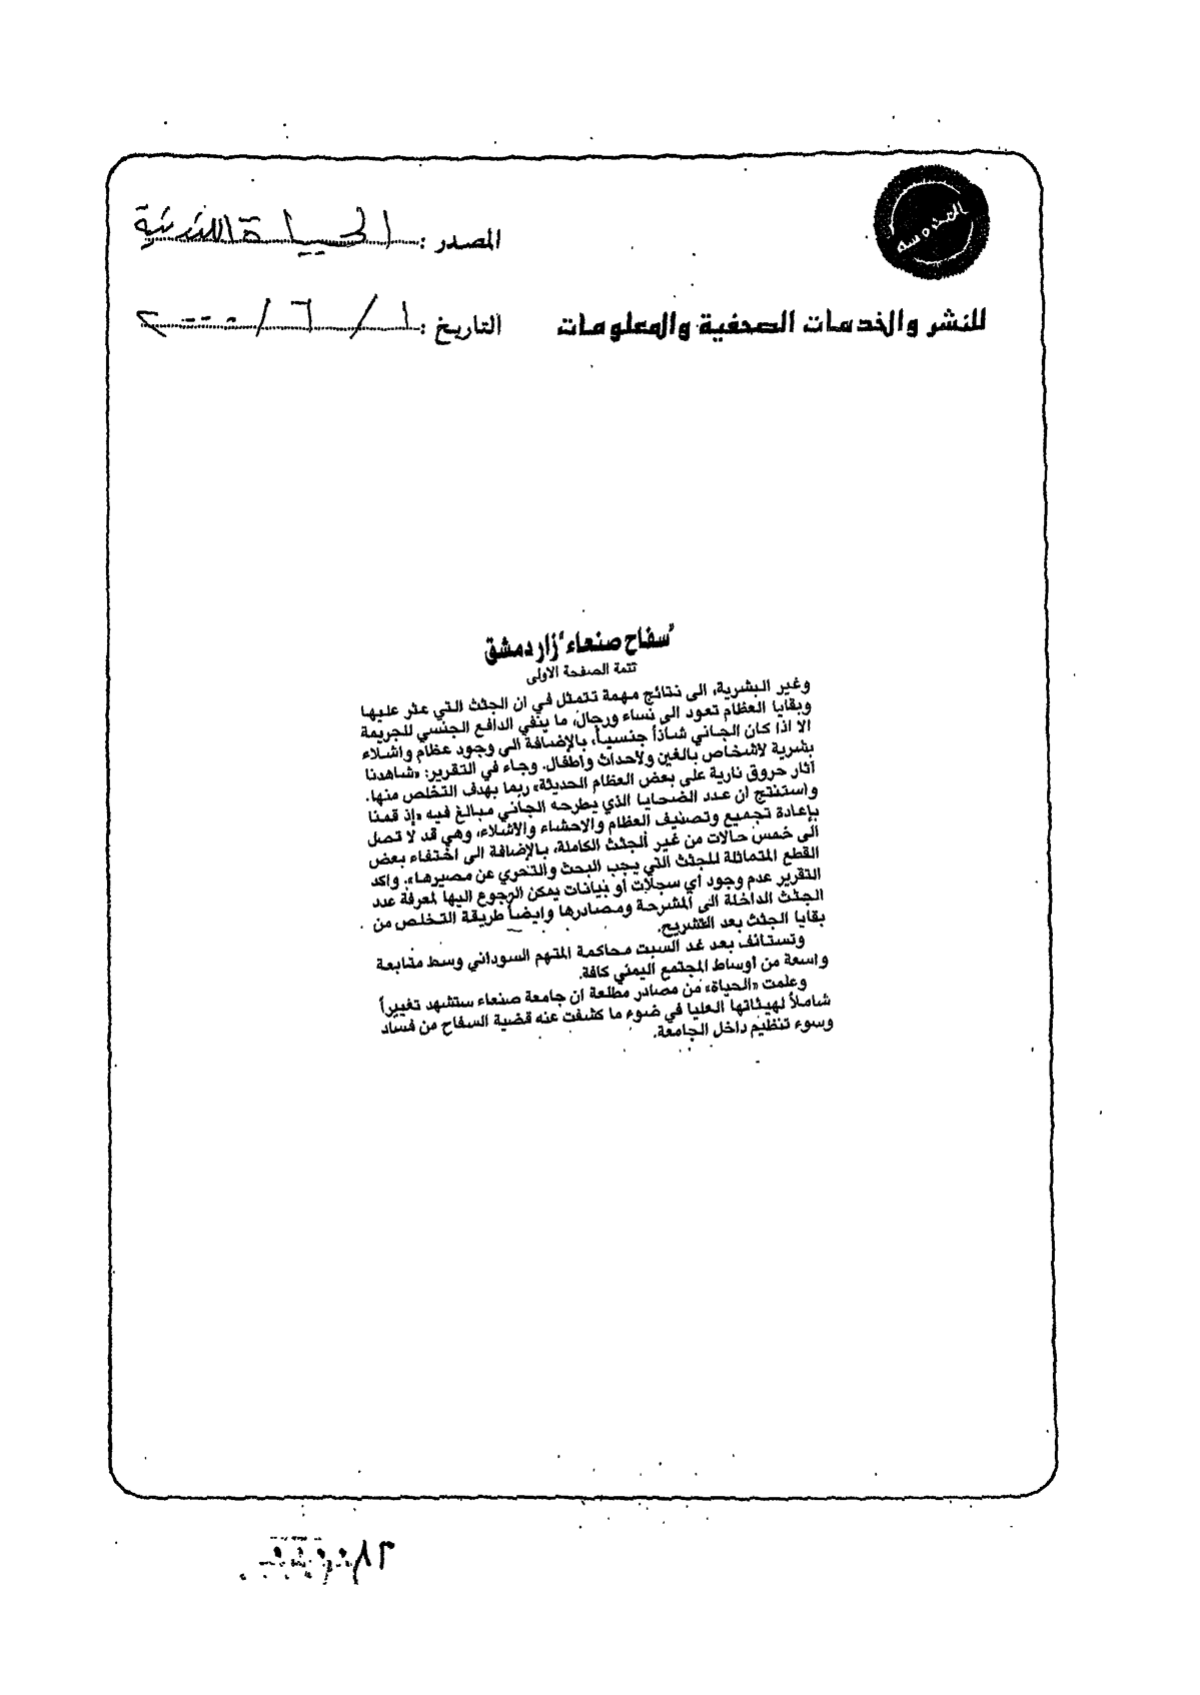 المحروسة
المصدر : الحياة اللندنية
للنشر والخدمات الصحفية والمعلومات
التاريخ : ١ / ٦ / ٢٠٠٠
"سفاح صنعاء" زار دمشق
تتمة الصفحة الاولى
وغير البشرية، الى نتائج مهمة تتمثل في ان الجثث التي عثر عليها
وبقايا العظام تعود الى نساء ورجال، ما ينفي الدافع الجنسي للجريمة
الا اذا كان الجاني شاذاً جنسياً، بالإضافة الى وجود عظام واشلاء
بشرية لاشخاص بالغين ولاحداث واطفال. وجاء في التقرير: «شاهدنا
آثار حروق نارية على بعض العظام الحديثة» ربما بهدف التخلص منها.
واستنتج ان عدد الضحايا الذي يطرحه الجاني مبالغ فيه «إذ قمنا
بإعادة تجميع وتصنيف العظام والاحشاء والاشلاء، وهي قد لا تصل
الى خمس حالات من غير الجثث الكاملة، بالإضافة الى اختفاء بعض
القطع المتماثلة للجثث التي يجب البحث والتحري عن مصيرها». واكد
التقرير عدم وجود أي سجلات أو بيانات يمكن الرجوع اليها لمعرفة عدد
الجثث الداخلة الى المشرحة ومصادرها وايضاً طريقة التخلص من
بقايا الجثث بعد التشريح.
وتستانف بعد غد السبت محاكمة المتهم السوداني وسط متابعة
واسعة من اوساط المجتمع اليمني كافة.
وعلمت «الحياة» من مصادر مطلعة ان جامعة صنعاء ستشهد تغييراً
شاملاً لهيئاتها العليا في ضوء ما كشفت عنه قضية السفاح من فساد
وسوء تنظيم داخل الجامعة.